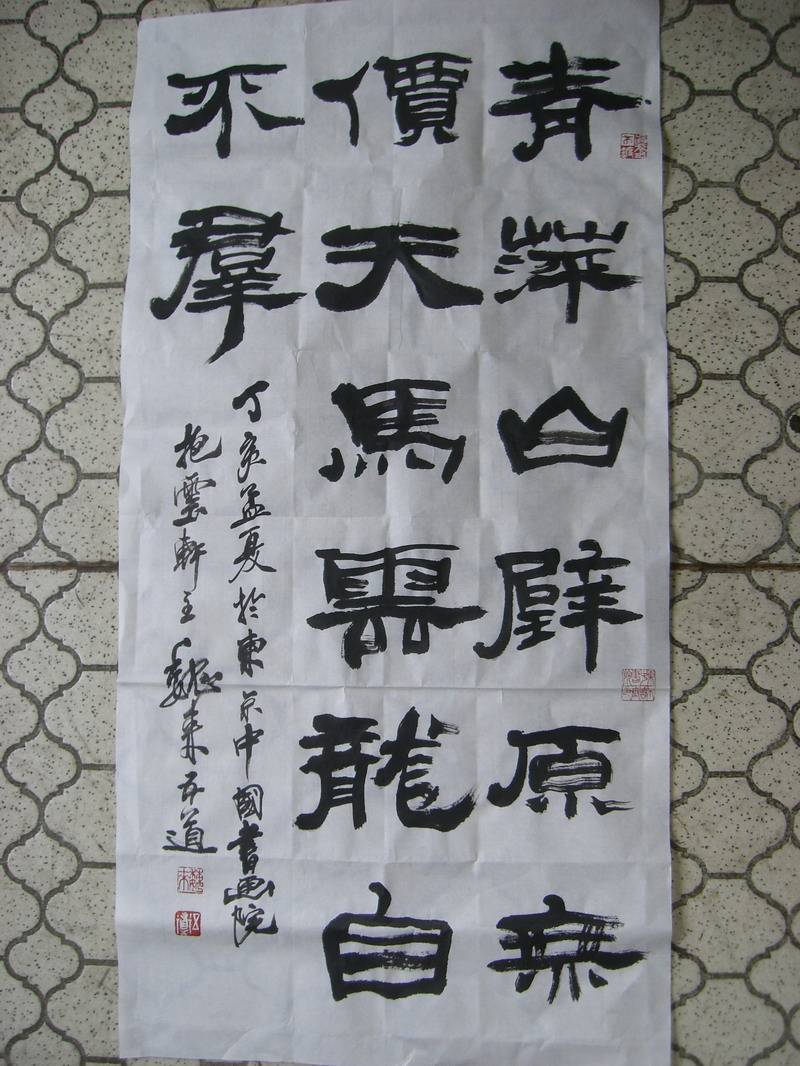 青萍白璧原無
價天馬雲龍自
不羣
丁亥孟夏於東京中國書画院
抱雲軒主魏来五道